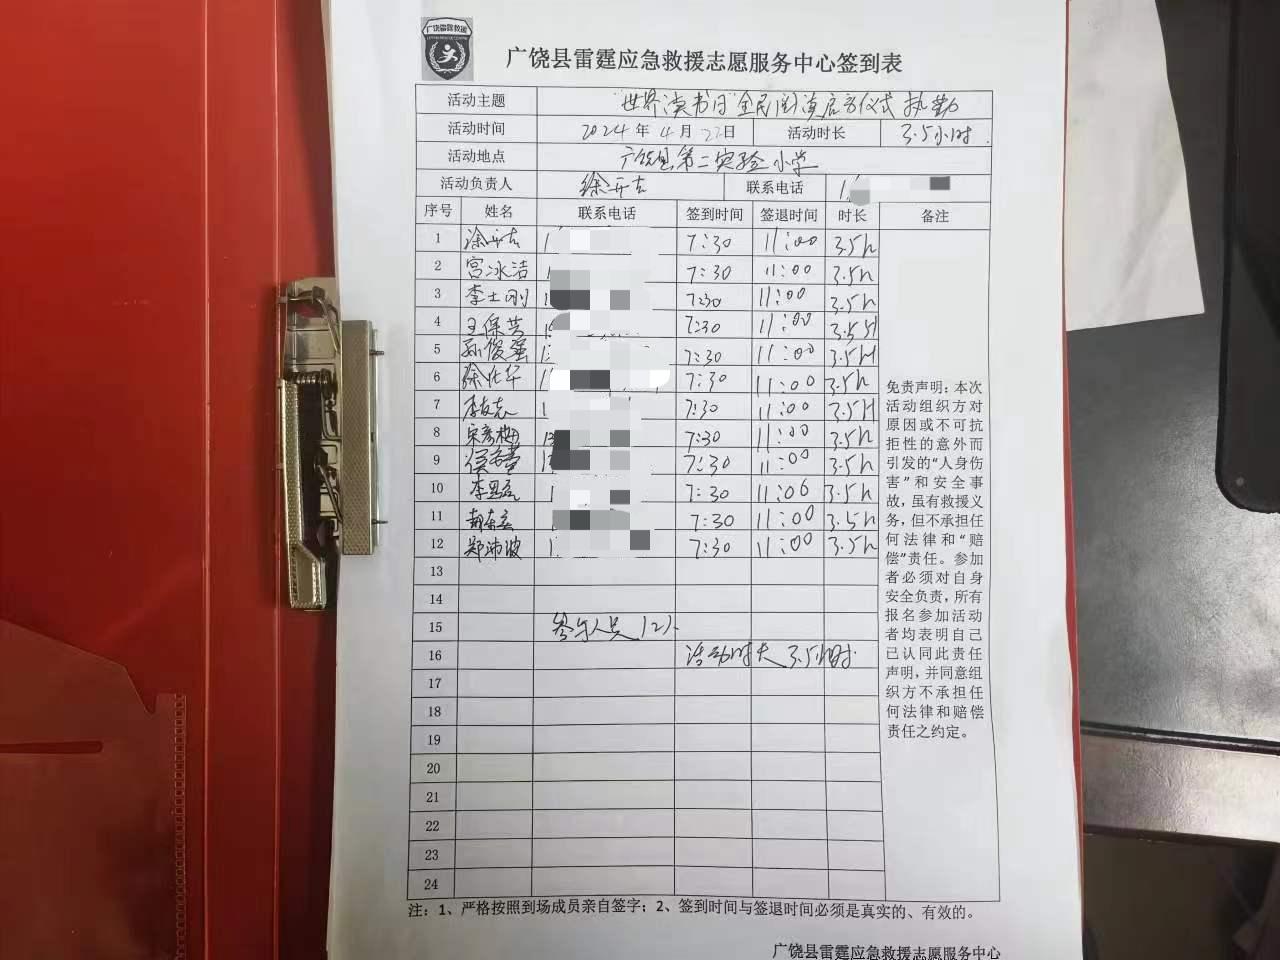 广饶雷霆救援
广饶县雷霆应急救援志愿服务中心签到表
活动主题 "世界读书日"全民阅读启动仪式 执勤
活动时间 2024年4月22日 活动时长 3.5小时
活动地点 广饶县第二实验小学
活动负责人 徐 联系电话 1
序号 姓名 联系电话 签到时间 签退时间 时长 备注
1 徐 1 7:30 11:00 3.5h
2 宫冰洁 7:30 11:00 3.5h
3 李士刚 7:30 11:00 3.5h
4 王保 7:30 11:00 3.5H
5 孙俊强 1 7:30 11:00 3.5H
6 徐 华 1 7:30 11:00 3.5h
7 李友志 1 7:30 11:00 3.5H
8 宋彦梅 13 7:30 11:00 3.5h
9 7:30 11:00 3.5h
10 李 1 7:30 11:00 3.5h
11 1 7:30 11:00 3.5h
12 郑沛波 1 7:30 11:00 3.5h
13
14
15 参与人员12人
16 活动时长3.5小时
17
18
19
20
21
22
23
24
免责声明：本次
活动组织方对
原因或不可抗
拒性的意外而
引发的“人身伤
害”和安全事
故，虽有救援义
务，但不承担任
何法律和“赔
偿”责任。参加
者必须对自身
安全负责，所有
报名参加活动
者均表明自己
已认同此责任
声明，并同意组
织方不承担任
何法律和赔偿
责任之约定。
注：1、严格按照到场成员亲自签字；2、签到时间与签退时间必须是真实的、有效的。
广饶县雷霆应急救援志愿服务中心